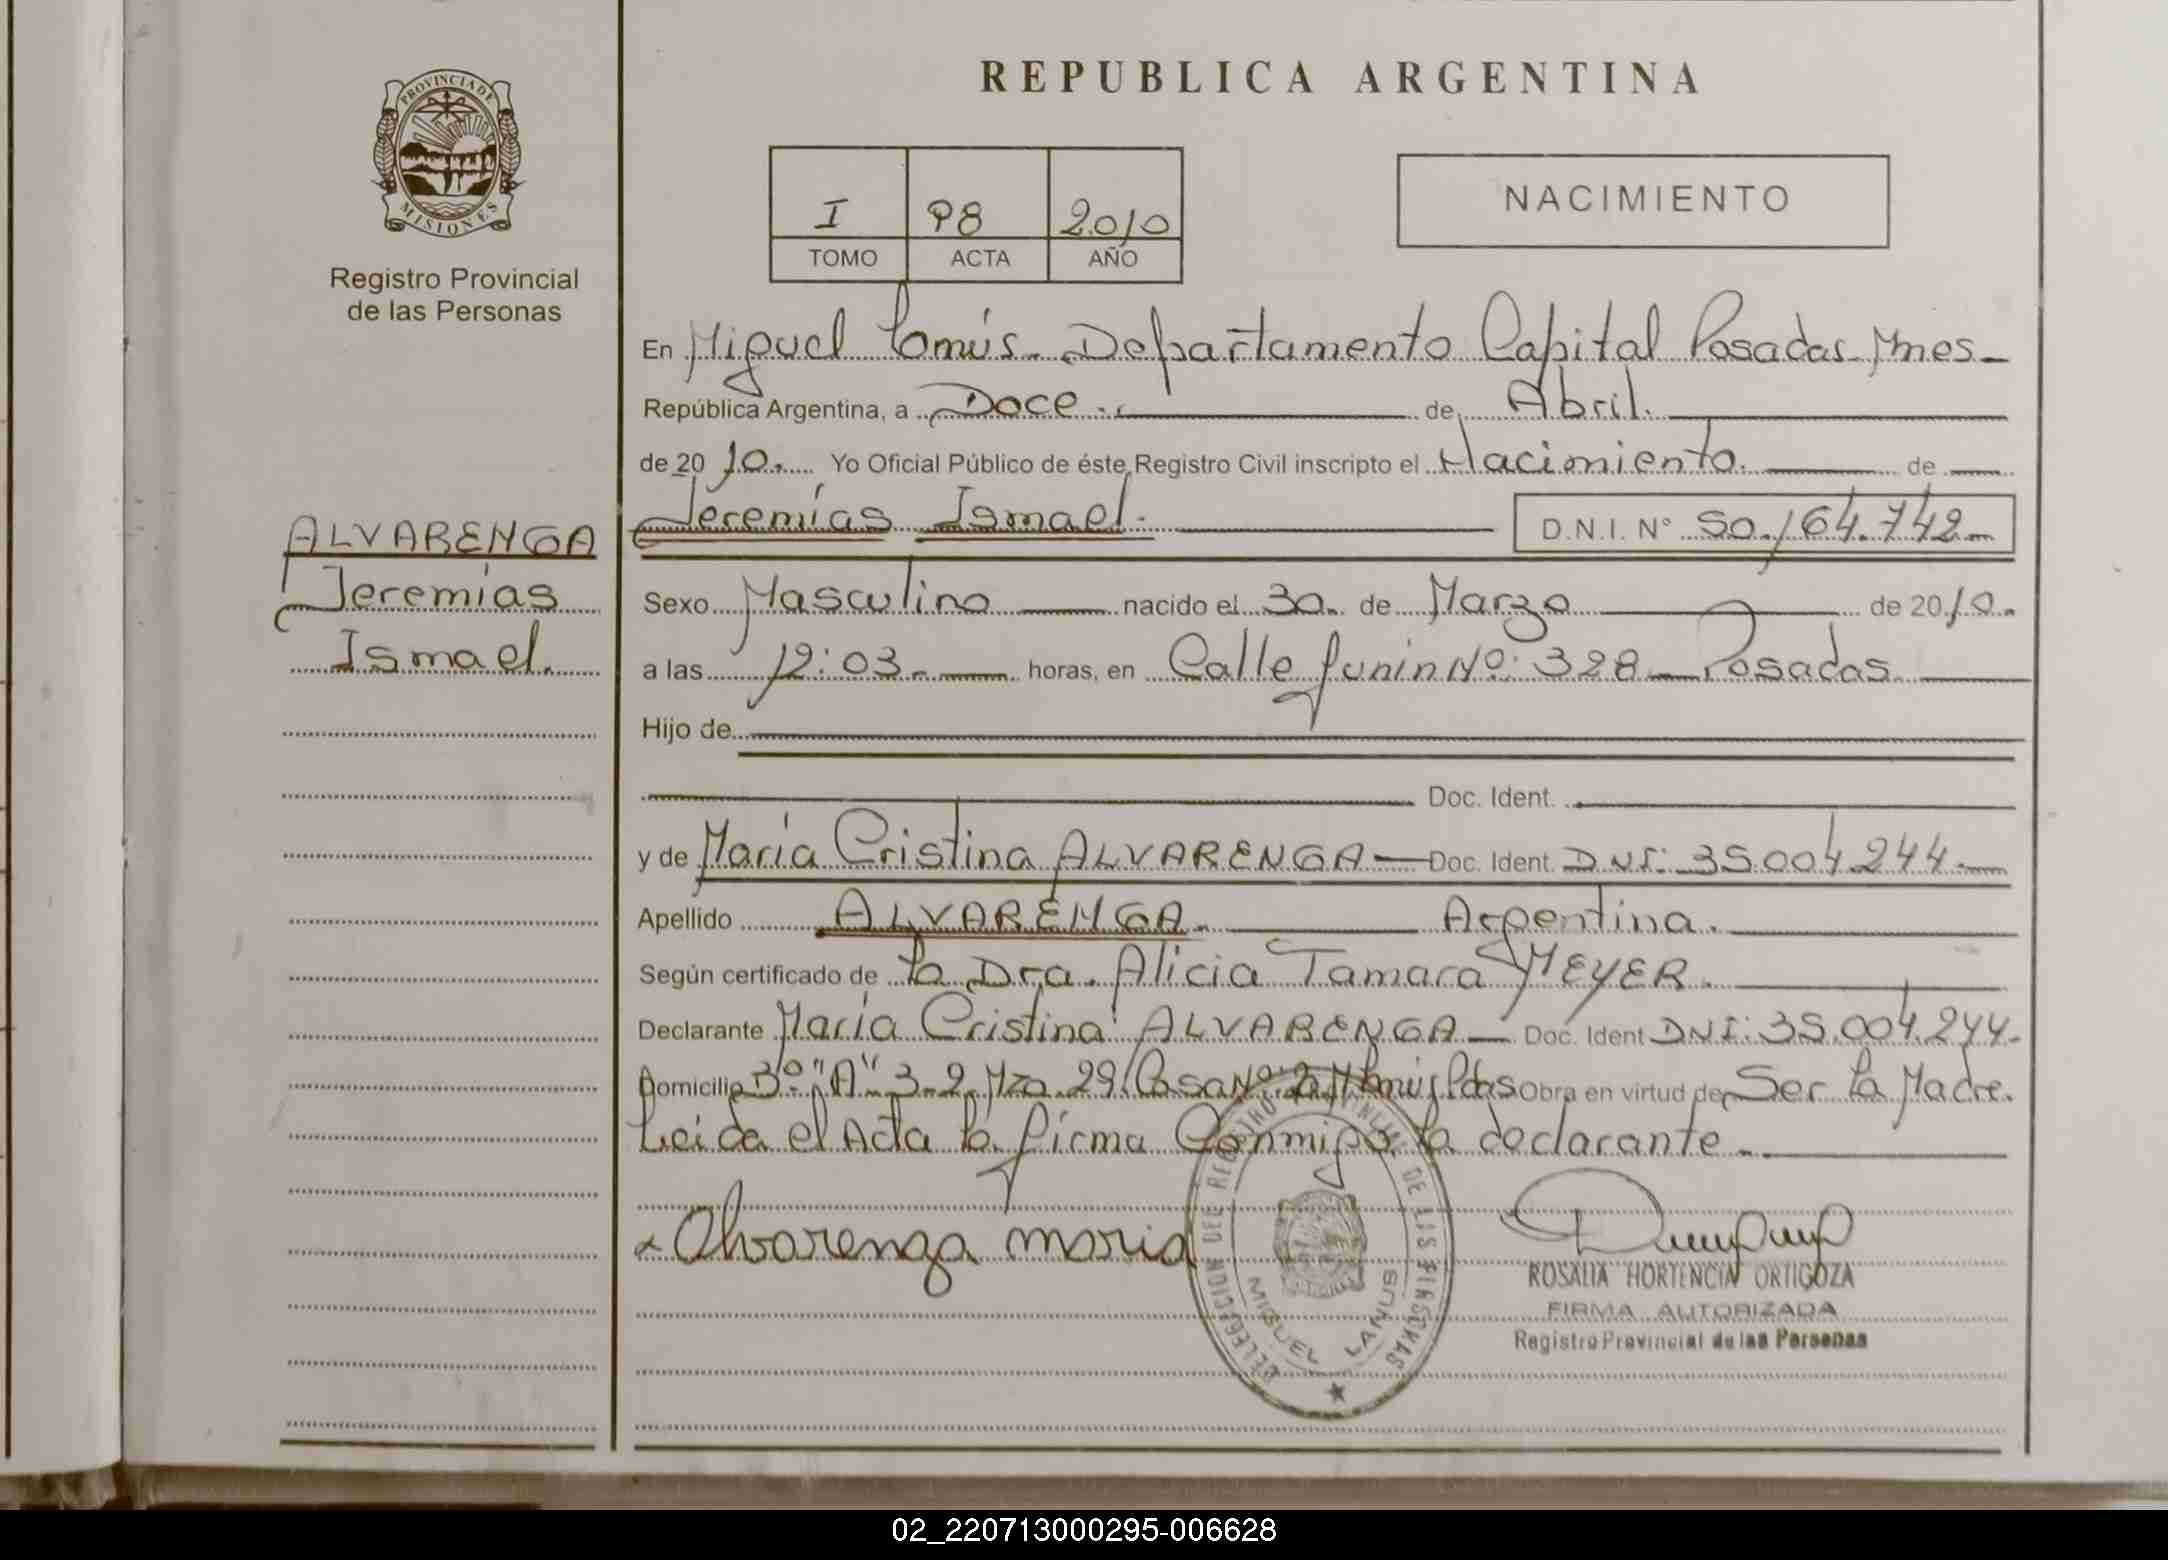 PROVINCIA DE
MISIONES
Registro Provincial
de las Personas
ALVARENGA
Jeremías
Ismael.
REPUBLICA ARGENTINA
I 98 2010
TOMO ACTA AÑO
NACIMIENTO
En Miguel Lanús. Departamento Capital Posadas Mnes
República Argentina, a Doce. de Abril.
de 2010. Yo Oficial Público de éste Registro Civil inscripto el Nacimiento. de
Jeremías Ismael. D.N.I. N° 50.164.742
Sexo Masculino nacido el 30. de Marzo de 2010.
a las 12:03. horas, en Calle Junín Nº: 328 Posadas
Hijo de
Doc. Ident.
y de María Cristina ALVARENGA Doc. Ident. DNI: 35.004.244.
Apellido ALVARENGA. Argentina.
Según certificado de la Dra. Alicia Tamara MEYER.
Declarante María Cristina ALVARENGA Doc. Ident DNI: 35.004.244.
Domicilio 3º "A" 3-2 Mza 29 Casa Nº 2 Pdas Obra en virtud de Ser la Madre.
Leída el Acta la firma Conmigo la declarante.
Alvarenga maria
DELEGACION DEL REGISTRO PROVINCIAL DE LAS PERSONAS
MIGUEL LANUS
ROSALIA HORTENCIA ORTIGOZA
FIRMA AUTORIZADA
Registro Provincial de las Personas
02_220713000295-006628